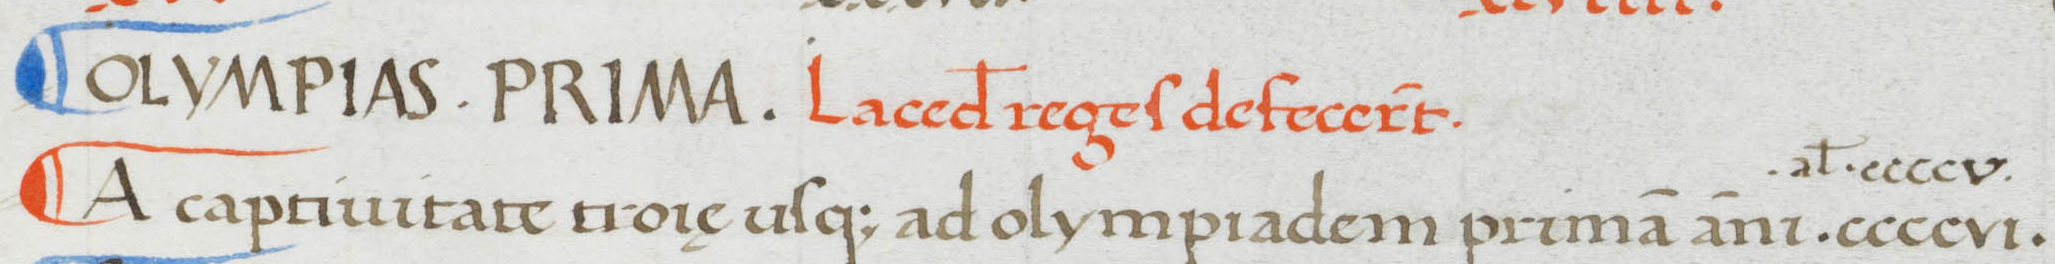 OLYMPIAS . PRIMA . Laced̄ reges defecer̄t.
.al̄.ccccv.
A captiuitate troię usq; ad olympiadem primā āni .ccccvi.